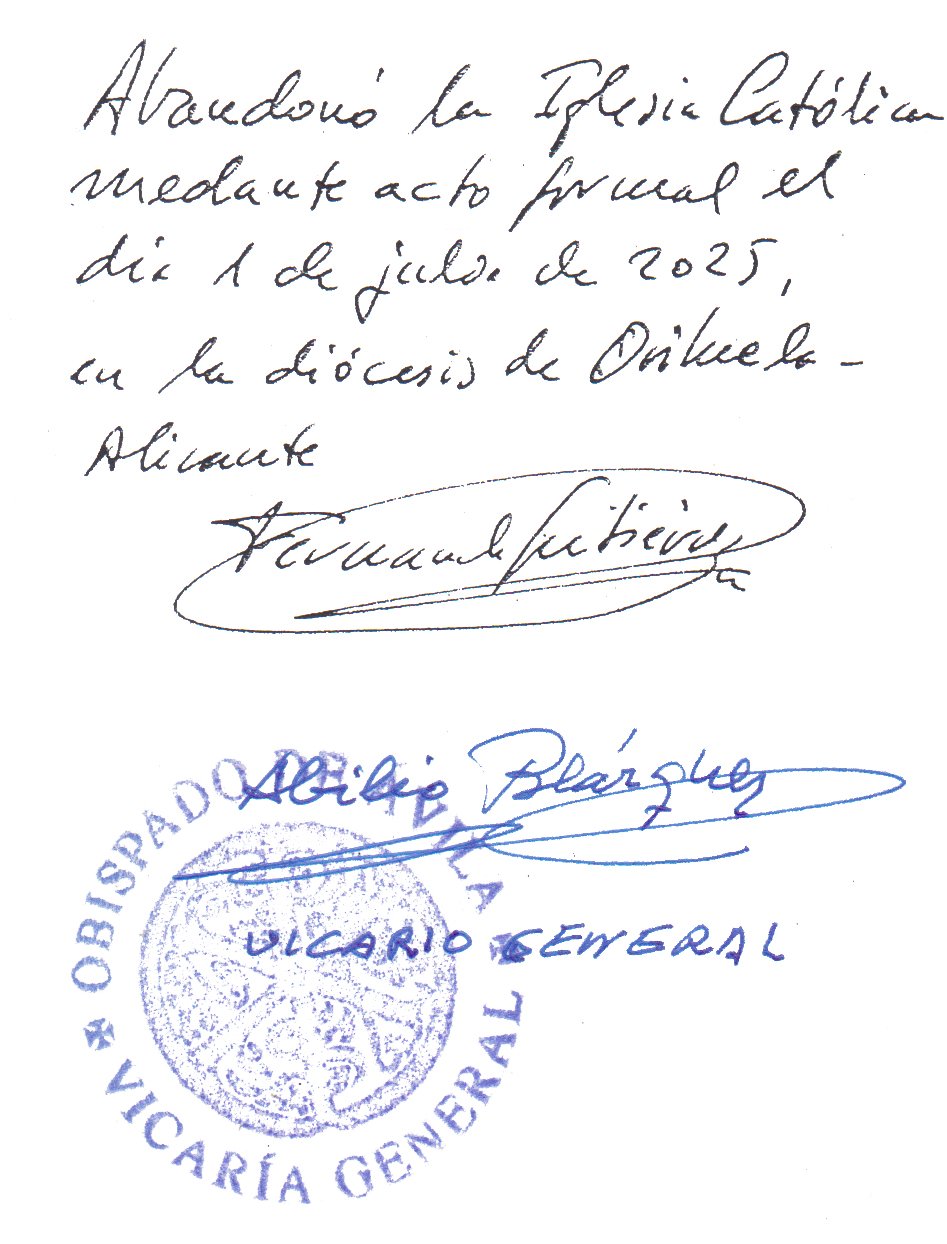 Abandonó la Iglesia Católica
mediante acto formal el
día 1 de julio de 2025,
en la diócesis de Orihuela-
Alicante
Fernando Gutiérrez
Abilio Blázquez
VICARIO GENERAL
OBISPADO DE AVILA
VICARÍA GENERAL